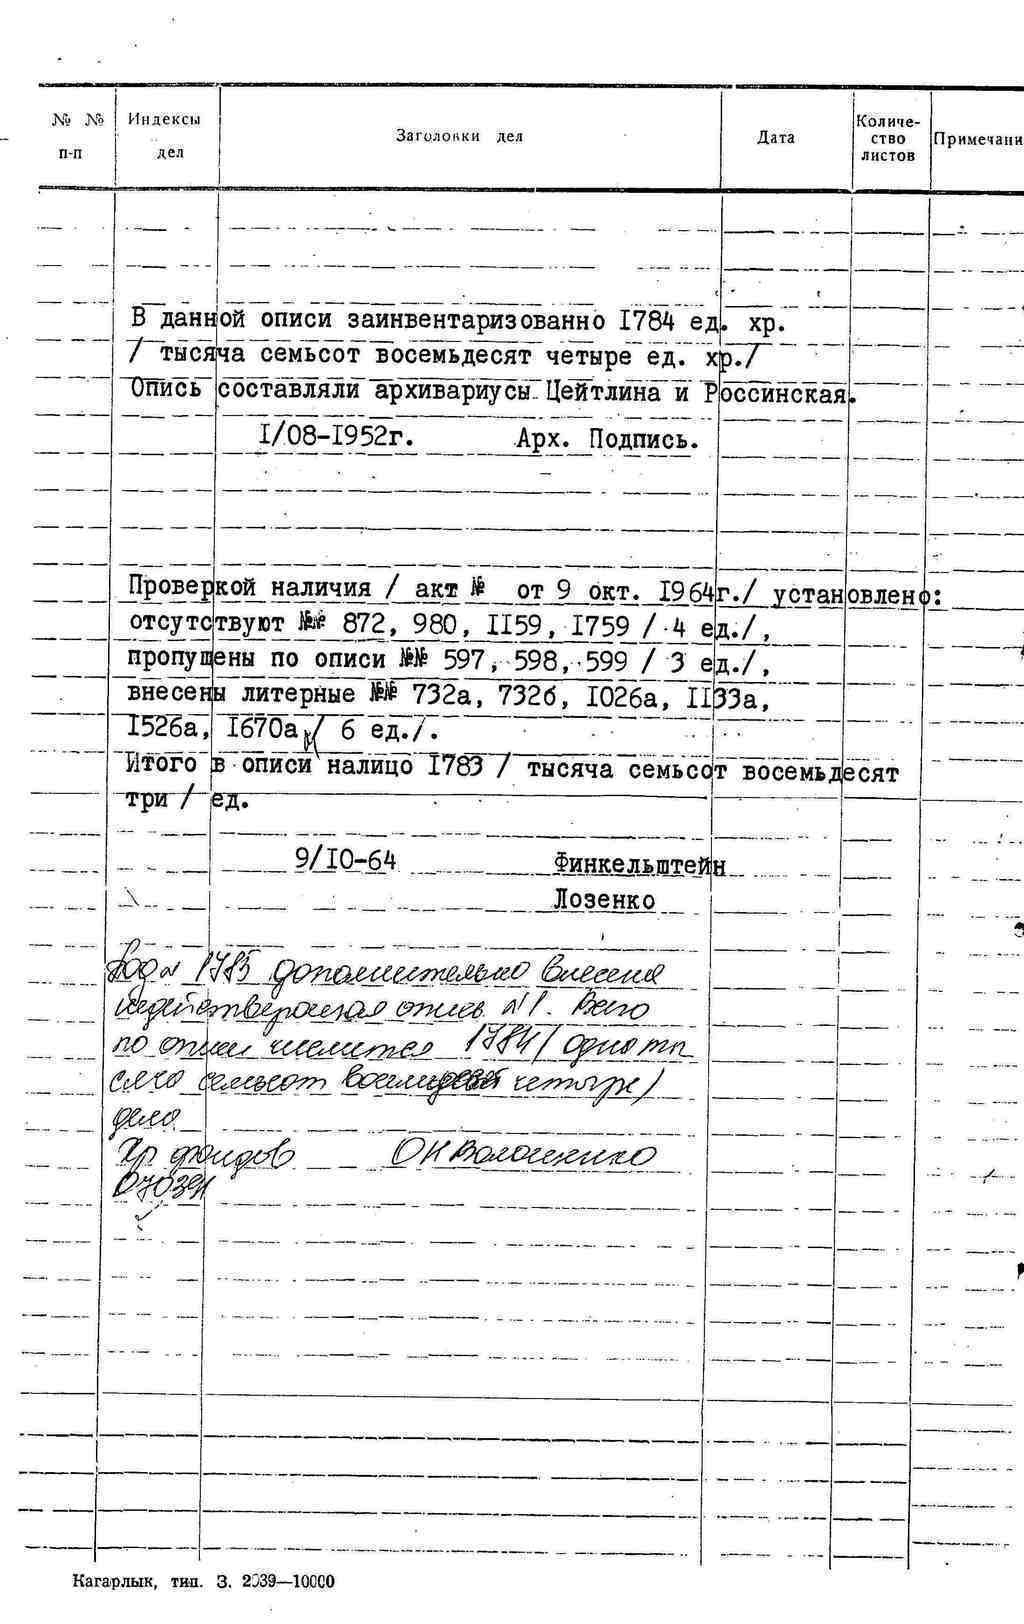 № №
п-п
Индексы
дел
Заголовки дел
Дата
Количе-
ство
листов
Примечани
В данной описи заинвентаризованно I784 ед. хр.
/ тысяча семьсот восемьдесят четыре ед. хр./
Опись составляли архивариусы Цейтлина и Россинская.
I/08-I952г. Арх. Подпись.
Проверкой наличия / акт № от 9 окт. I964г./ установлено:
отсутствуют №№ 872, 980, II59, I759 / 4 ед./,
пропущены по описи №№ 597, 598, 599 / 3 ед./,
внесены литерные №№ 732а, 732б, I026а, II33а,
I526а, I670а / 6 ед./.
Итого в описи налицо I783 / тысяча семьсот восемьдесят
три / ед.
9/IO-64 Финкельштейн
Лозенко
Под № 1785 дополнительно внесена
недействеронная опись №1. Всего
по описи числится 1784 / одна ты
сяча семьсот восемьдесят четыре /
дела.
Хр фондов
Кагарлык, тип. З. 2039—10000